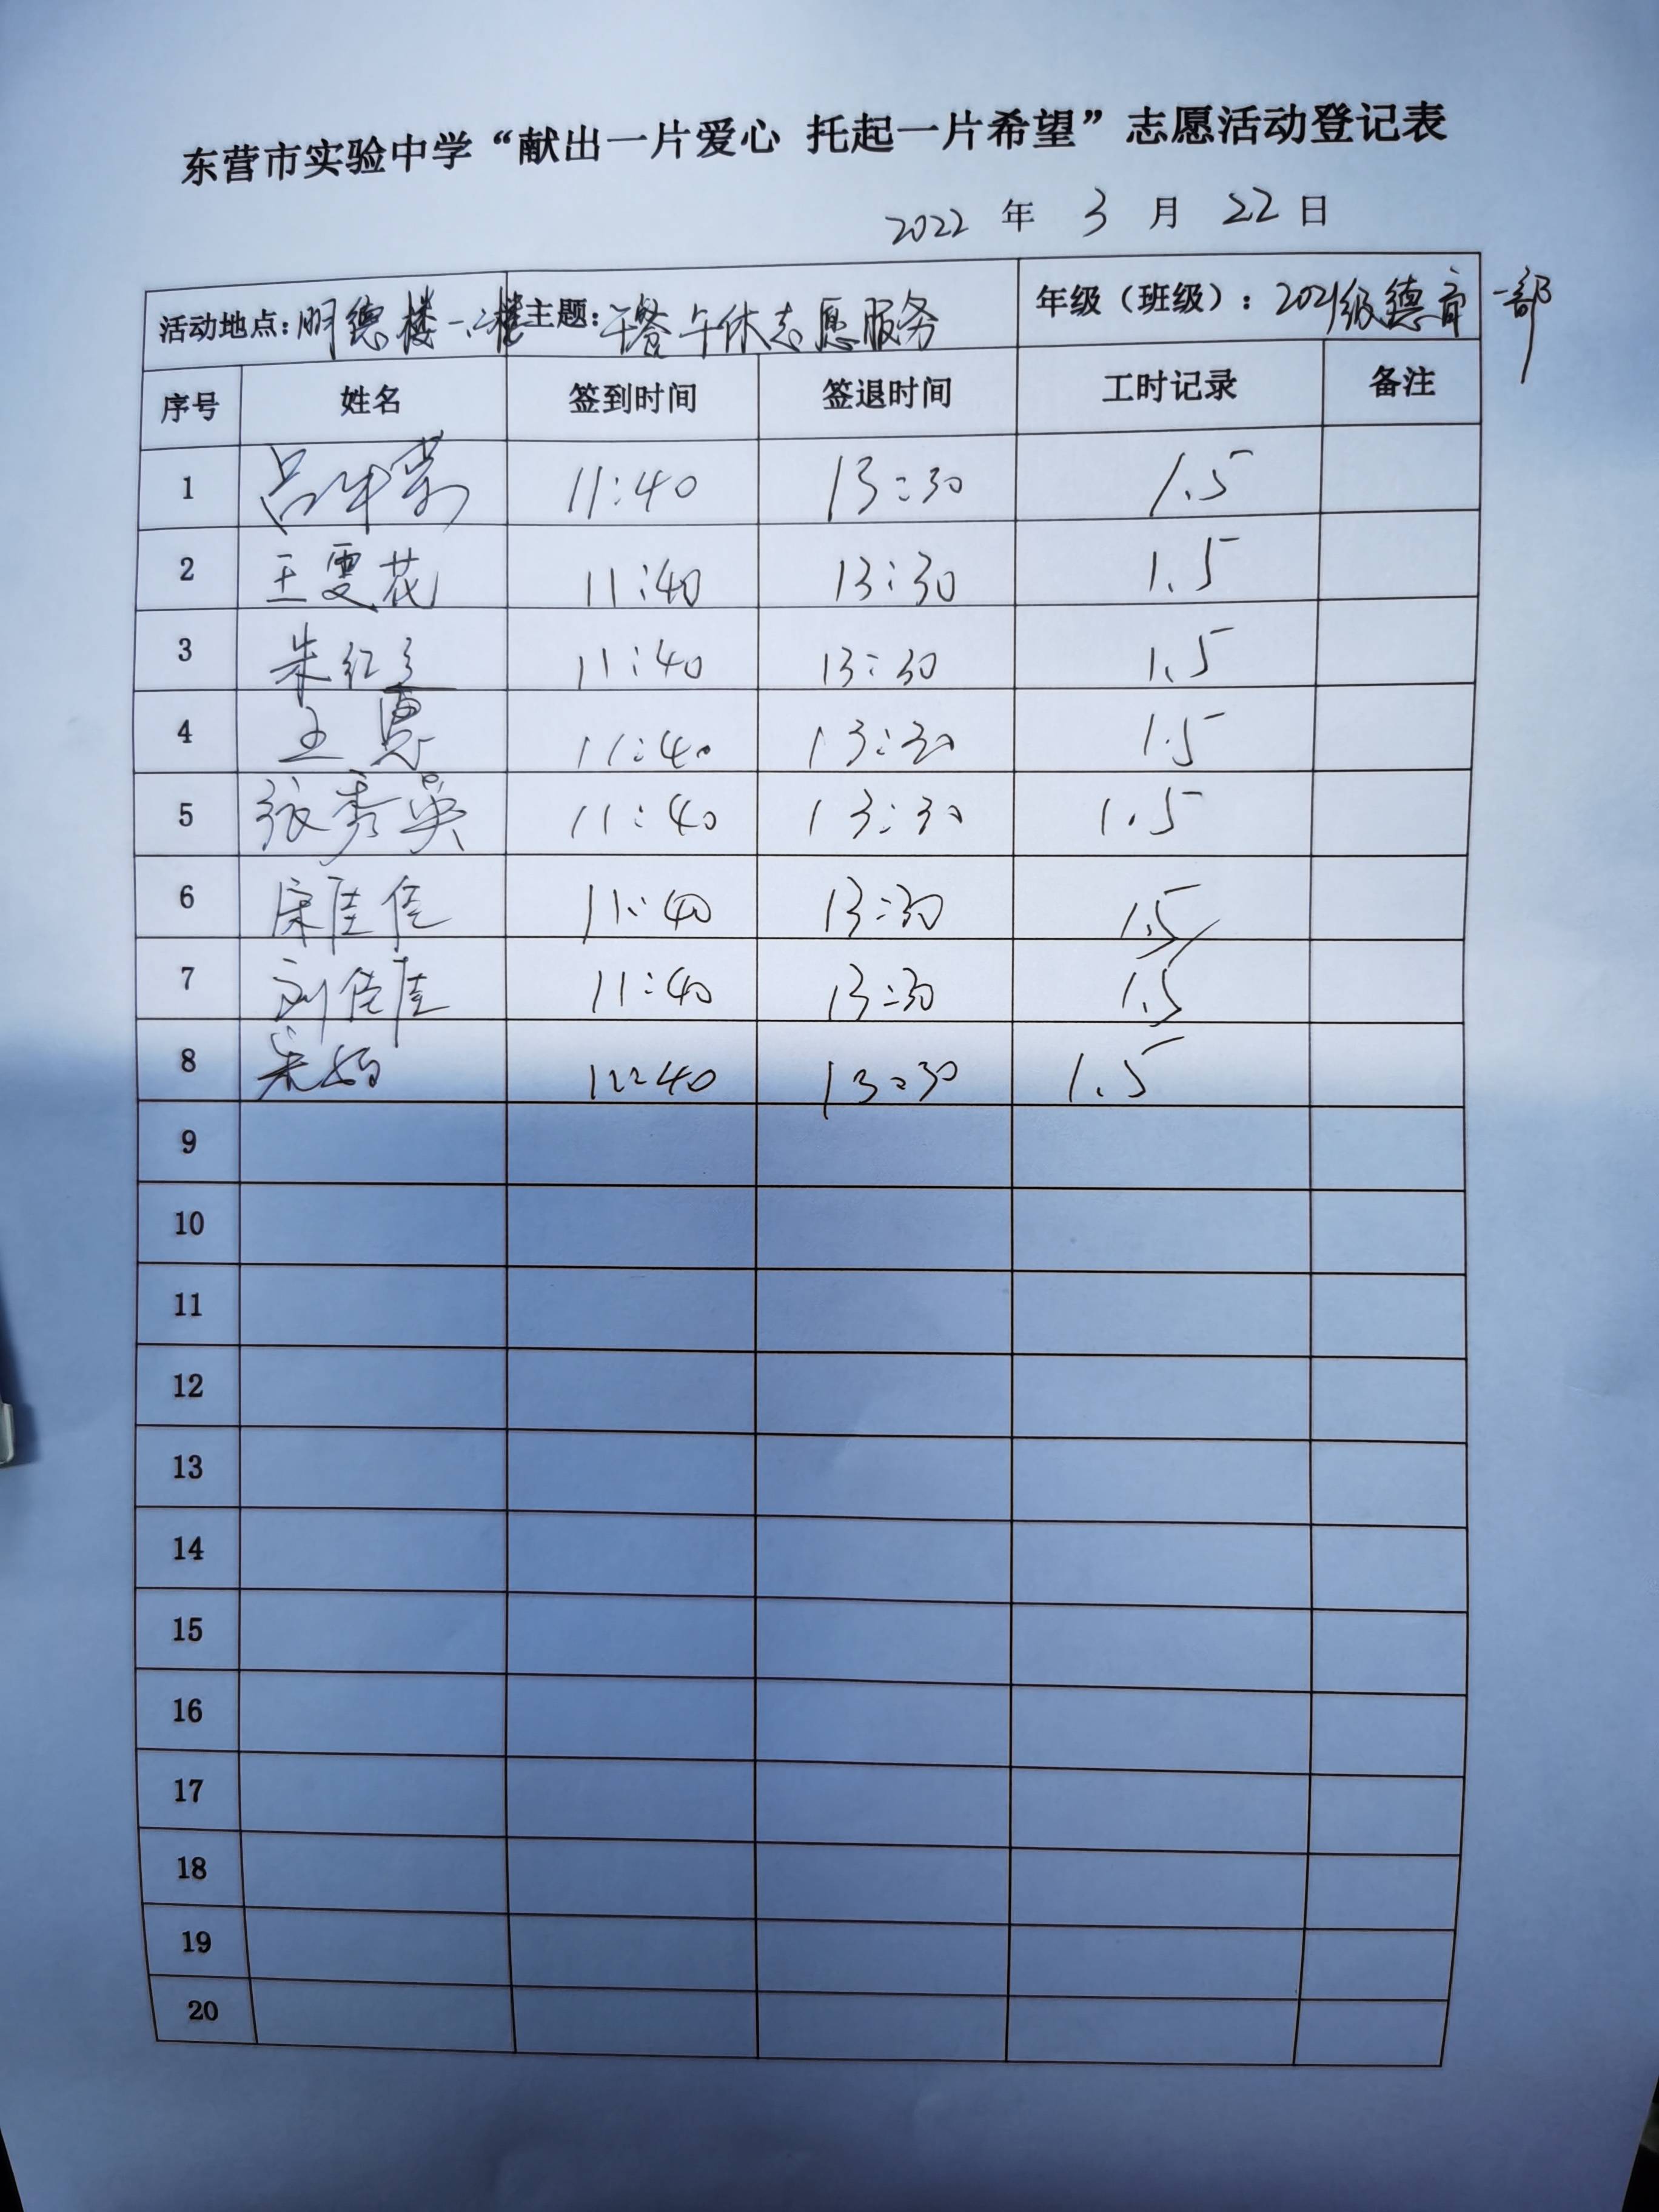 东营市实验中学“献出一片爱心 托起一片希望”志愿活动登记表
2022 年 3 月 22 日
活动地点：明德楼一、二楼 主题：午餐午休志愿服务 年级（班级）：2021级德育一部
序号 姓名 签到时间 签退时间 工时记录 备注
1 11:40 13:30 1.5
2 王雯花 11:40 13:30 1.5
3 朱红 11:40 13:30 1.5
4 王勇 11:40 13:30 1.5
5 张秀英 11:40 13:30 1.5
6 宋佳佳 11:40 13:30 1.5
7 刘佳佳 11:40 13:30 1.5
8 朱 11:40 13:30 1.5
9
10
11
12
13
14
15
16
17
18
19
20